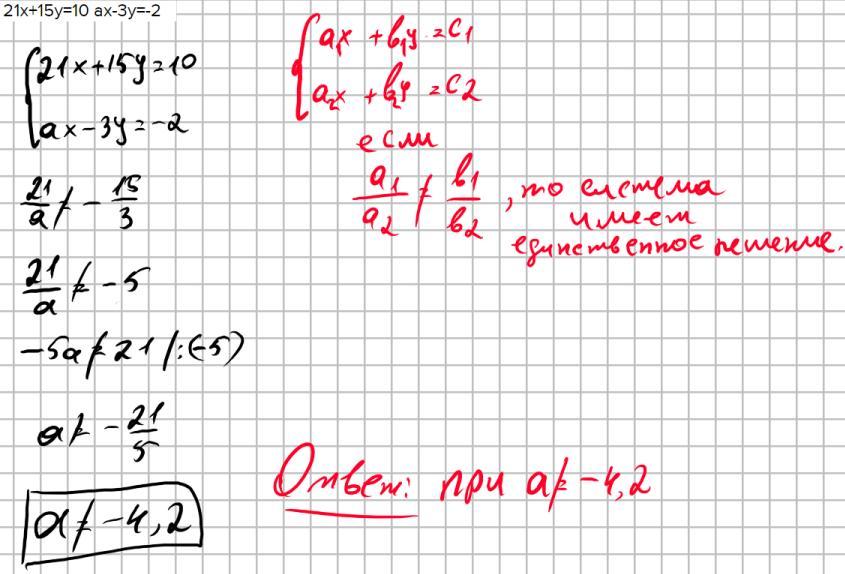 21x+15y=10 ax-3y=-2
{21x+15y=10
ax-3y=-2
21/a ≠ -15/3
21/a ≠ -5
-5a≠21 |:(-5)
a≠ -21/5
a≠-4,2
{a₁x +b₁y =c₁
a₂x +b₂y =c₂
если
a₁/a₂ ≠ b₁/b₂, то система
имеет
единственное решение.
Ответ: при a≠-4,2